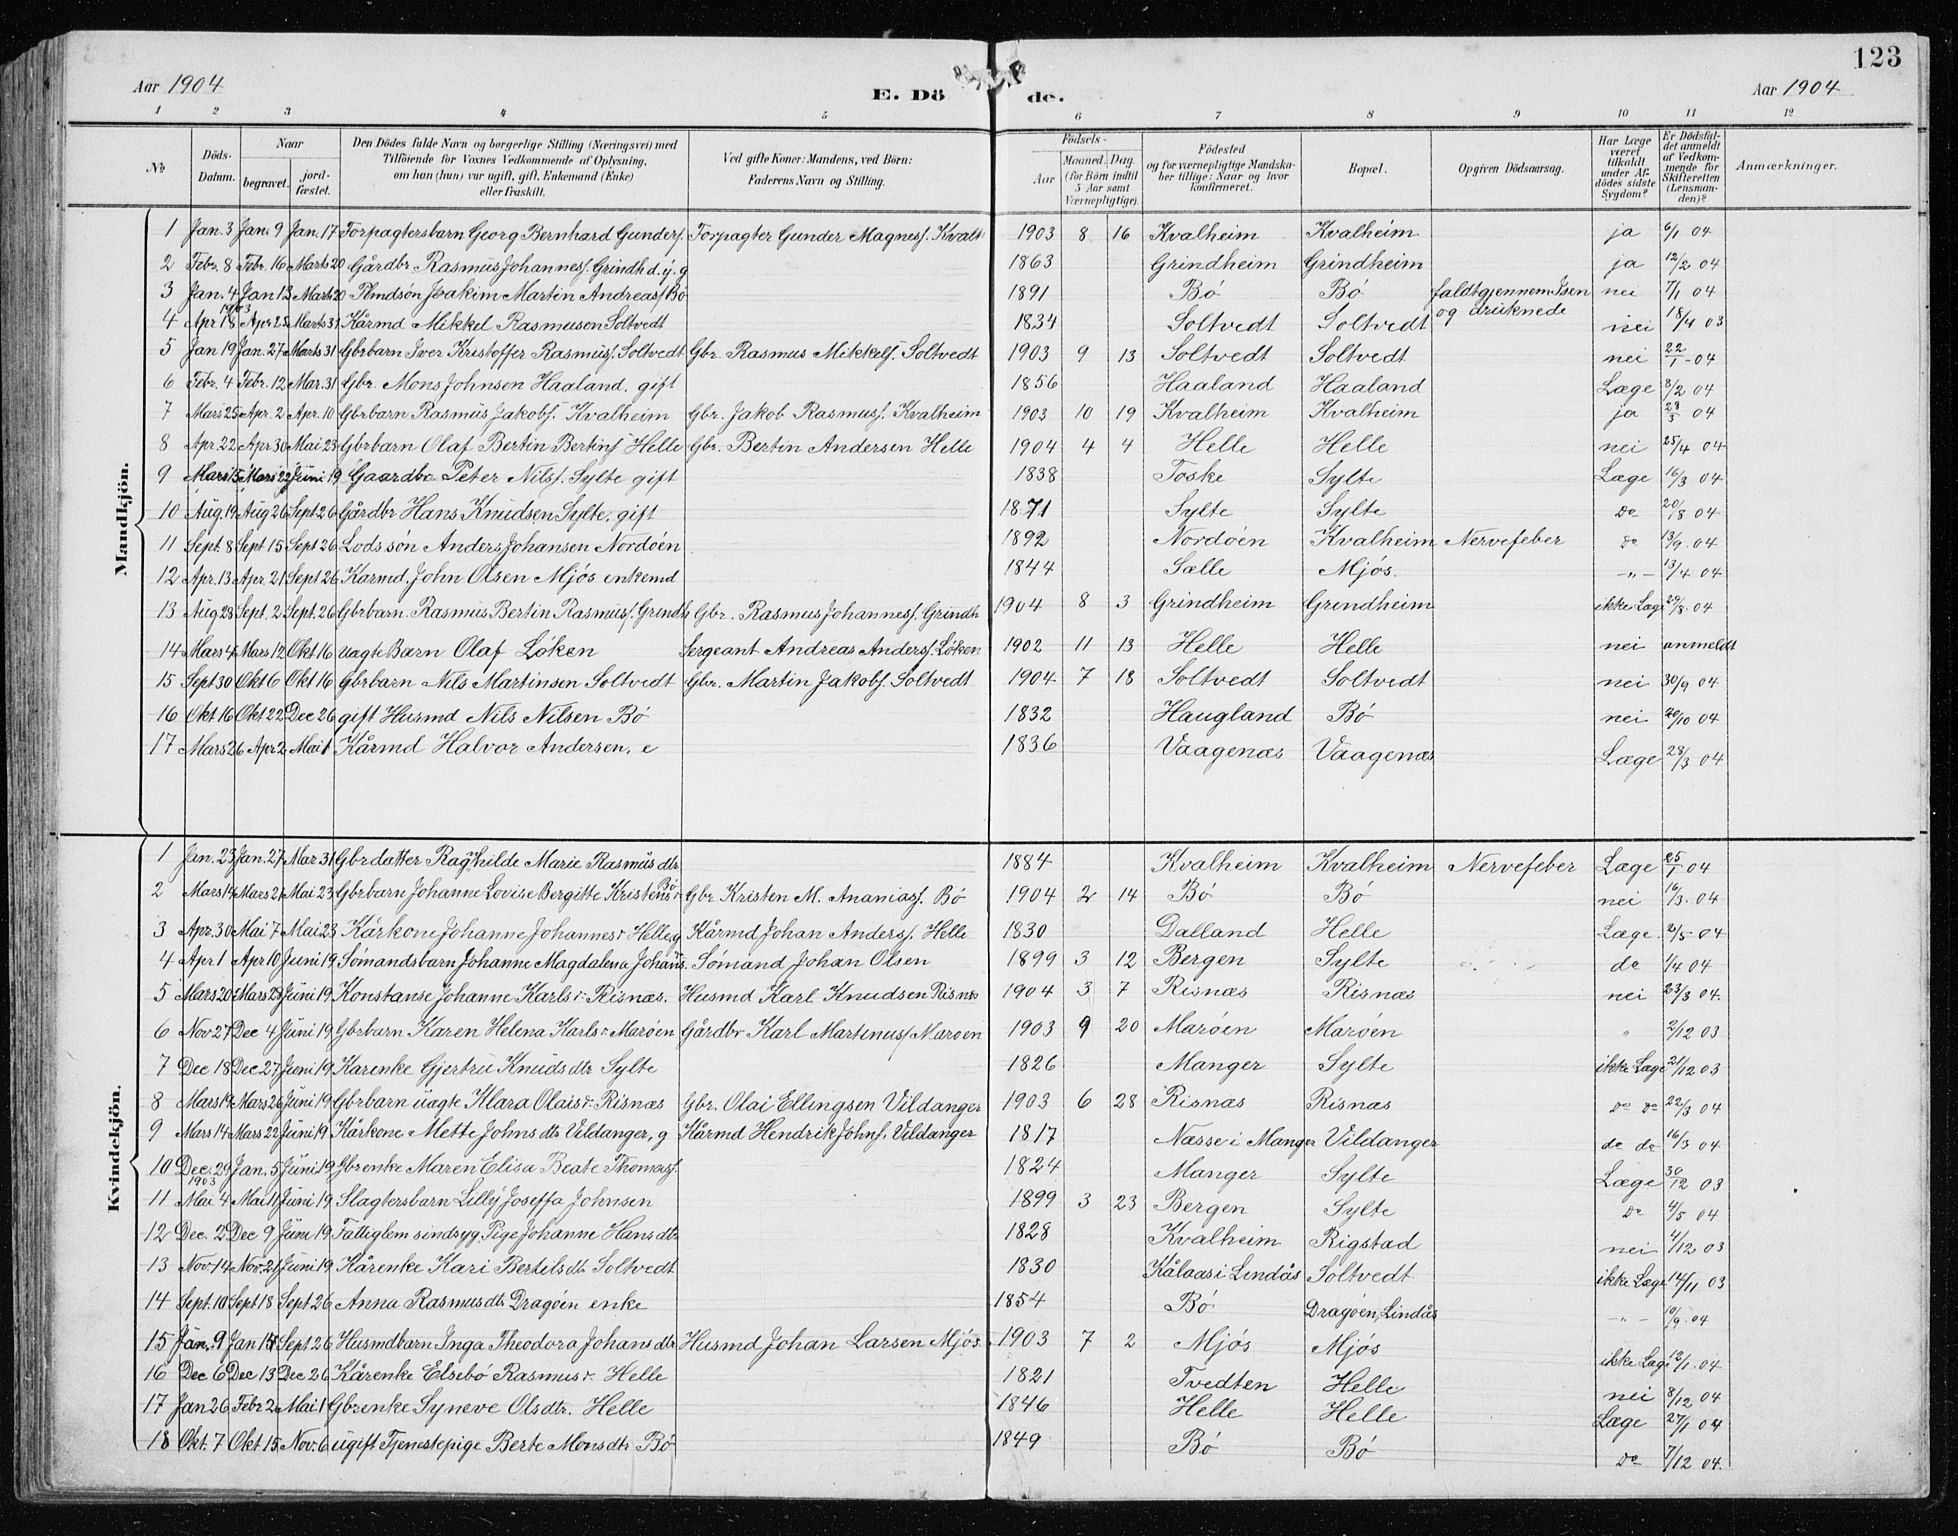 123
Aar 1904 E. Dö de. Aar 1904
1 2 3 4 5 6 7 8 9 10 11 12
No Döds-Datum. Naar begravet. jord-fæstet. Den Dödes fulde Navn og borgerlige Stilling (Næringsvei) med Tilföiende för Voxnes Vedkommende af Oplysning, om han (hun) var ugift, gift, Enkemand (Enke) eller fraskilt. Ved gifte Koner: Mandens, ved Börn: Faderens Navn og Stilling. Födsels- Aar Maaned. Dag. (for Börn indtil 5 Aar samt Værnepligtige). Födested og for værnepligtige Mandskaber tillige: Naar og hvor konfirmeret. Bopæl. Opgiven Dödsaarsag. Har Læge været tilkaldt under Afdödes sidste Sygdom? Er Dödsfaldet anmeldt af Vedkommende for Skifteretten (Lensmanden)? Anmærkninger.
Mandkjön.
1 Jan. 3 Jan. 9 Jan. 17 Forpagtersbarn Georg Bernhard Gunders. Forpagter Gunder Magnes. Kvalh 1903 8 16 Kvalheim Kvalheim ja 6/1 04
2 Febr. 8 Febr. 16 Marts 20 Gårdbr Rasmus Johannes. Grindh d. y. g 1863 Grindheim Grindheim ja 12/2 04
3 Jan. 4 Jan 13 Mart 20 Joakim Martin Andreas. Bö 1891 Bö Bö faldt gjennem Isen og druknede nei 7/1 04
4 Apr 18 1903 Apr 25 Marts 31 Kårmd Mikkel Rasmusen Soltvedt 1834 Soltvedt Soltvedt nei 18/4 03
5 Jan 19 Jan. 27 Marts 31 Gbrbarn Iver Kristoffer Rasmus. Soltvedt Gbr. Rasmus Mikkels. Soltvedt 1903 9 13 Soltvedt Soltvedt nei 22/1 - 04
6 Febr. 4 Febr. 12 Mar. 31 Gbr. Mons Johnsen Haaland, gift 1856 Haaland Haaland Læge 8/2 04
7 Mars 25 Apr. 2 Apr. 10 Gbrbarn Rasmus Jakobs. Kvalheim Gbr. Jakob Rasmus. Kvalheim 1903 10 19 Kvalheim Kvalheim ja 04
8 Apr. 22 Apr 30 Mai 23 Gbrbarn Olaf Bertin Bertins Helle Gbr. Bertin Andersen Helle 1904 4 4 Helle Helle nei 25/4 04
9 Mars 15 Mars 22 Juni 19 Gaardbr Peter Nils. Sylte gift 1838 Toske Sylte Læge 16/3 04
10 Aug. 19 Aug 26 Sept 26 Gårdbr Hans Knudsen Sylte, gift 1871 Sylte Sylte do 20/8 04
11 Sept. 8 Sept 15 Sept 26 Lods sön Anders Johansen Nordöen 1892 Nordöen Kvalheim Nervefeber do 13/9 - 04
12 Apr. 13 Apr. 21 Sept 26 Karmd. John Olsen Mjös enkemd 1844 Sælle Mjös. -"- 13/4 04
13 Aug 28 Sept. 2 Sept. 26 Gbrbarn. Rasmus Bertin Rasmus. Grindh Gbr. Rasmus Johannes. Grindh 1904 8 3 Grindheim Grindheim ikke Læge 29/8 - 04
14 Mars 4 Mars 12 Okt 16 uagte Barn Olaf Löken Sergeant Andreas Anders. Löken 1902 11 13 Helle Helle nei anmeldt
15 Sept 30 Okt 6 Okt 16 Gbrbarn Nils Martinsen Soltvedt Gbr. Martin Jakobs. Soltvedt 1904 7 18 Soltvedt Soltvedt nei 30/9 04
16 Okt 16 Okt 22 Dec 26 gift Husmd Nils Nilsen Bö 1832 Haugland Bö nei 20/10 04
17 Mars 26 Apr 2 Mai 1 Kårmd Halvor Andersen, e 1836 Vaagenæs Vaagenæs Læge 28/3 04
Kvindekjön.
1 Jan. 23 Jan. 27 Mar 31 Gbrdatter Ragnhilde Marie Rasmus dtr 1884 Kvalheim Kvalheim Nervefeber Læge 25/1 04
2 Mars 14 Mars 24 Mai 23 Gbrbarn Johanne Lovise Bergitte Kristens Bö Gbr Kristen M. Ananias. Bö 1904 2 14 Bö Bö nei 16/3 - 04
3 Apr. 30 Mai 7 Mai 23 Kårkone Johanne Johannesdr Helle, g Kårmd Johan Anders. Helle 1830 Dalland Helle Læge. 2/5 - 04
4 Apr 1 Apr 10 Juni 19 Sömandsbarn Johanne Magdalena Johans. Sömand Johan Olsen 1899 3 12 Bergen Sylte do 1/4 04
5 Mars 20 Mars 28 Juni 19 Konstanse Johanne Karlsdr Risnæs. Husmd Karl Knudsen Risnæs 1904 3 7 Risnæs Risnæs nei 23/3 04.
6 Nov. 27 Dec 4 Juni 19 Gbrbarn Karen Helena Karlsdr Maröen Gårdbr Karl Martinus. Maroen 1903 9 20 Maröen Maröen " 2/12 03
7 Dec 18 Dec 27 Juni 19 Karenke Gjertru Knuds dtr Sylte 1826 Manger Sylte ikke Læge 21/12 03
8 Mars 19 Mars 26 Juni 19 Gbrbarn uagte Klara Olaisdr. Risnæs Gbr. Olai Ellingsen Vildanger 1903 6 28 Risnæs Risnæs do do 22/3 04
9 Mars 14 Mars 22 Juni 19 Kårkone Mette Johns dtr Vildanger, g Kårmd Hendrik Johns. Vildanger 1817 Næsse i Manger Vildanger do do 16/3 04
10 Dec. 29 1903 Jan. 5 Juni 19 Gbrenke Maren Elisa Beate Thomas. 1824 Manger Sylte Læge 30/12 03
11 Mai 4 Mai 11 Juni 19 Slagtersbarn Lilly Joseffa Johnsen 1899 3 23 Bergen Sylte do 4/5 04
12 Dec. 2 Dec 9 Juni 19 Fattiglem sindsyg Pige Johanne Hans dtr 1828 Kvalheim Rigstad nei 4/12 03
13 Nov. 14 Nov. 21 Juni 19 Kårenke Kari Bertels dtr Soltvedt 1830 Kålaas i Lindås Soltvedt ikke Læge 14/11 03
14 Sept. 10 Sept 18 Sept. 26 Anna Rasmus dtr Dragöen enke 1854 Bö Dragöen, Lindås -"- 10/9 - 04
15 Jan. 9 Jan 15 Sept 26 Husmdbarn Inga Theodora Johans dtr Husmd Johan Larsen Mjös. 1903 7 2 Mjös Mjös ikke Læge 12/1 - 04
16 Dec 6 Dec 13 Dec 26 Kårenke Elsebö Rasmusdr. Helle 1821 Tvedten Helle nei 8/12 04
17 Jan 26 Febr 2 Mai 1 Gbrenke Syneve Ols dtr. Helle 1846 Helle Helle Læge 27/1 04
18 Okt. 7 Okt 15 Nov. 6 ugift Tjenestepige Berte Mons dtr Bö 1849 Bö Bö do 7/12 04.